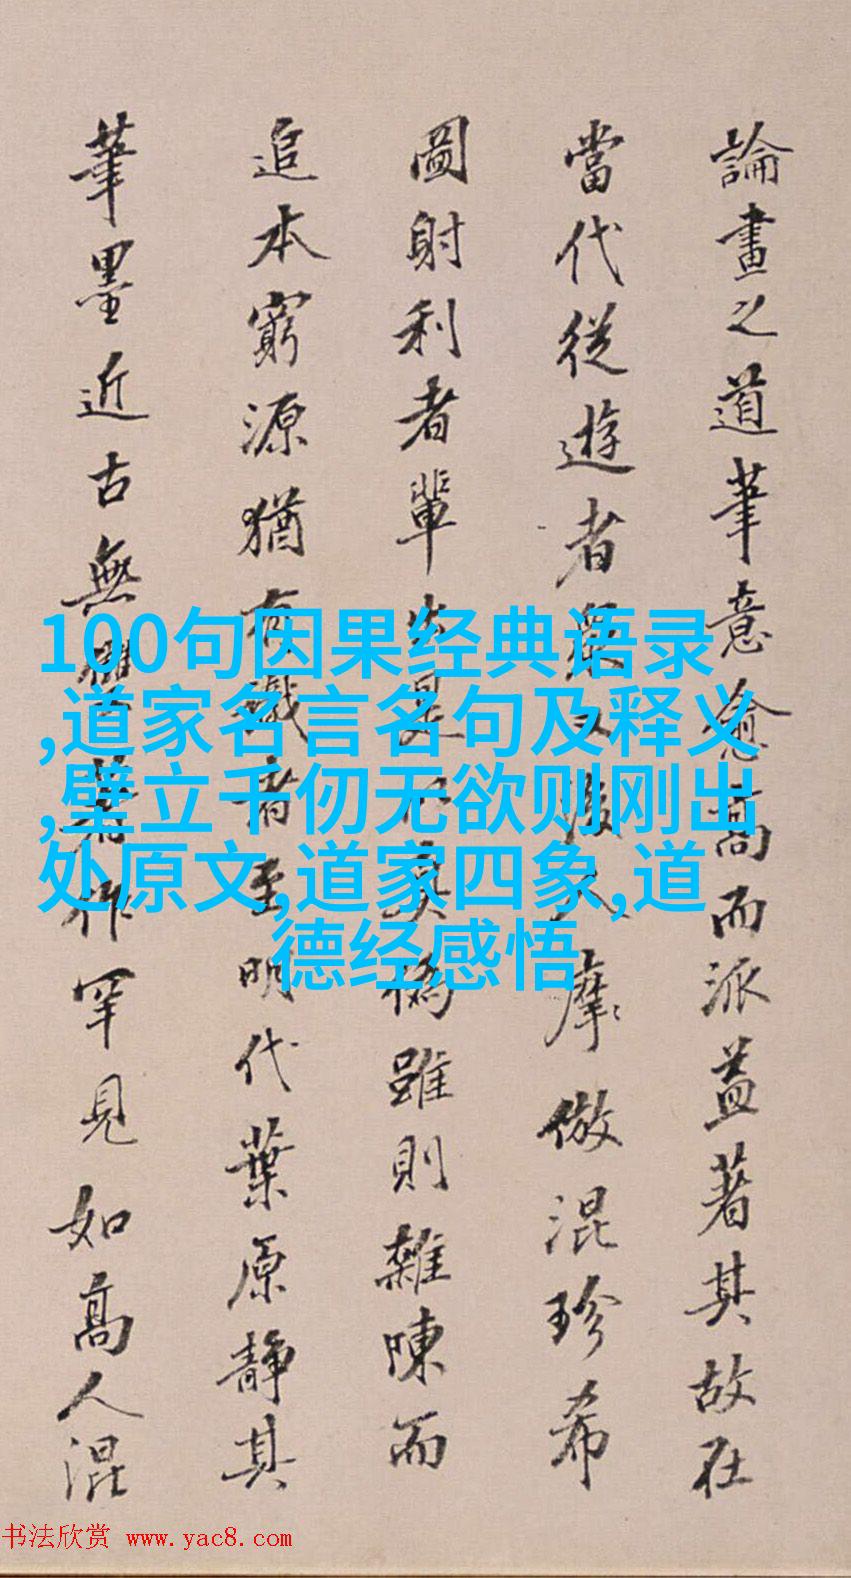 論畫之道筆意愈高而派益著其故在
當代從遊者又後人摩倣混珍希
圖射利者輩出是真偽雖則雜陳而
追本窮源猶有識者至明代葉原靜其
筆墨近古無著作罕見如高人混
100句因果经典语录
,道家名言名句及释义
,壁立千仞无欲则刚出
处原文,道家四象,道
德经感悟
书法欣赏 www.yac8.com